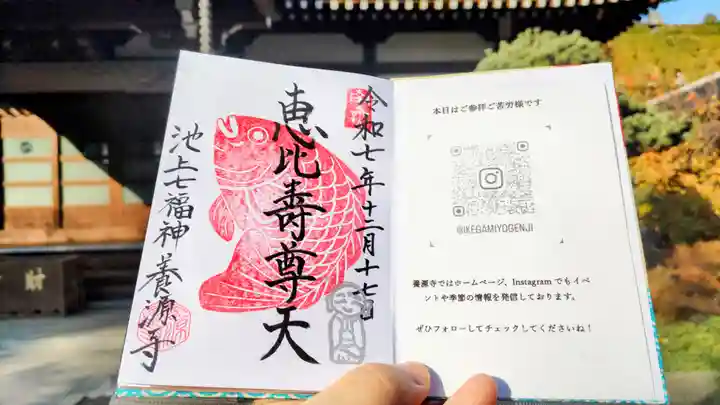 令和七年十二月十七日
恵比壽尊天
池上七福神 養源寺
本日はご参拝ご苦労様です
@IKEGAMIYOGENJI
養源寺ではホームページ、Instagramでもイベ
ントや季節の情報を発信しております。
ぜひフォローしてチェックしてくださいね！
財